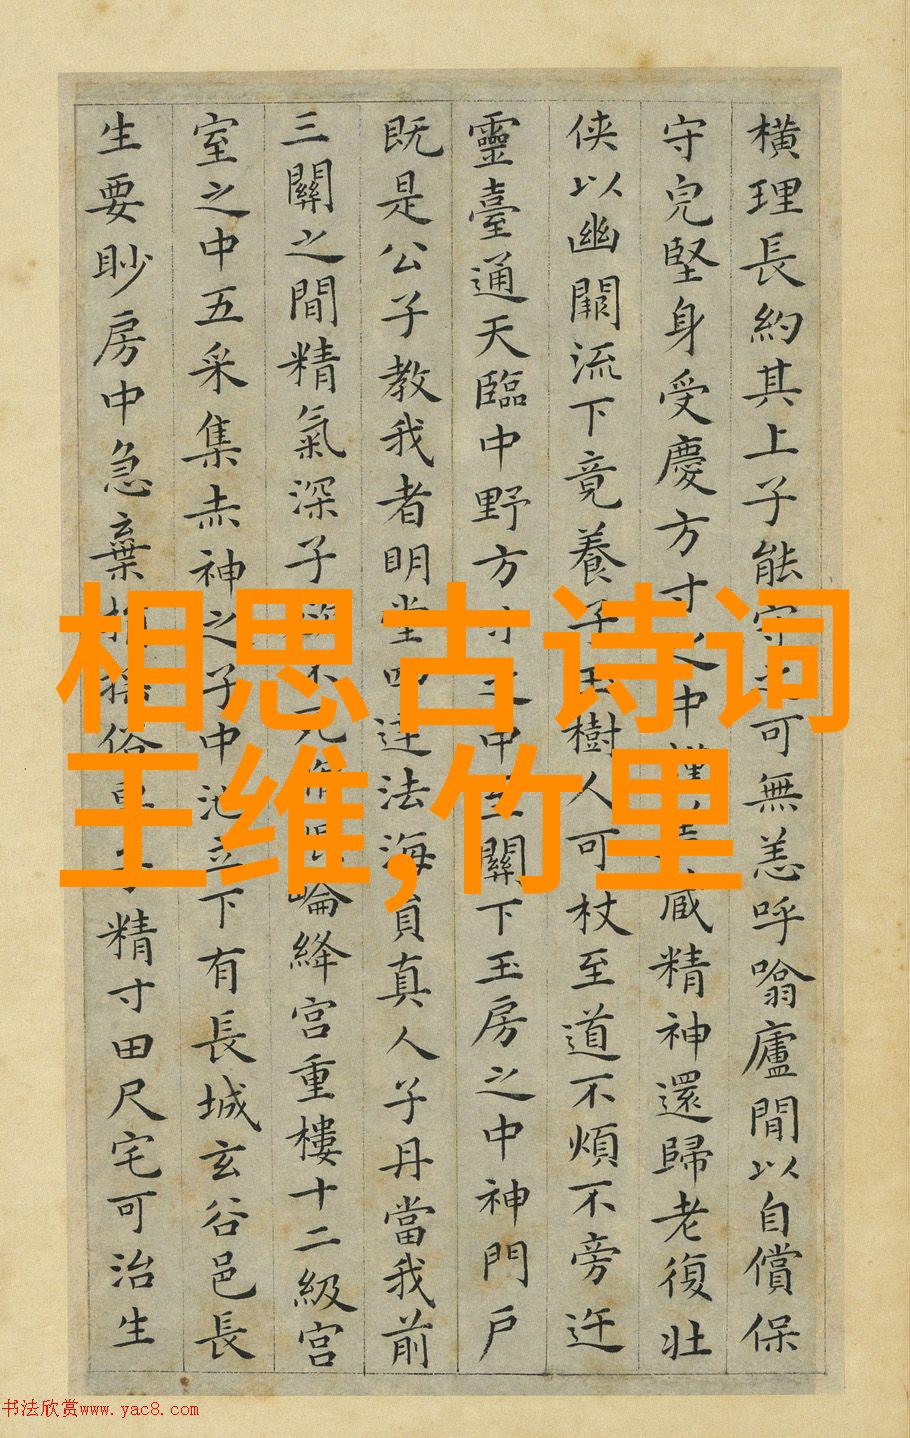 橫理長約其上子能守之可無恙呼噏廬間以自償保
守皃堅身受慶方寸之中謹藏精神還歸老復壯
俠以幽闕流下竟養子玉樹人可杖至道不煩不旁迕
靈臺通天臨中野方寸之中至關下玉房之中神門戶
既是公子教我者明堂四達法海員真人子丹當我前
三關之間精氣深子欲不死脩崐崘絳宮重樓十二級宮
室之中五采集赤神之子中池立下有長城玄谷邑長
生要眇房中急棄捐搖俗專子精寸田尺宅可治生
相思古诗词
王维,竹里
书法欣赏www.yac8.com